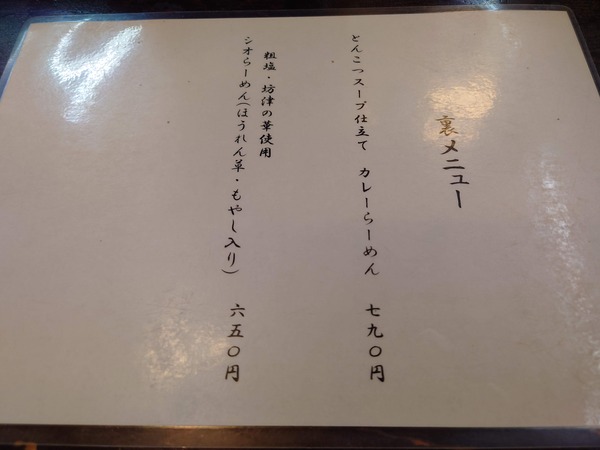 裏メニュー
とんこつスープ仕立て カレーらーめん 七九〇円
粗塩・坊津の華使用
シオらーめん(ほうれん草・もやし入り) 六五〇円